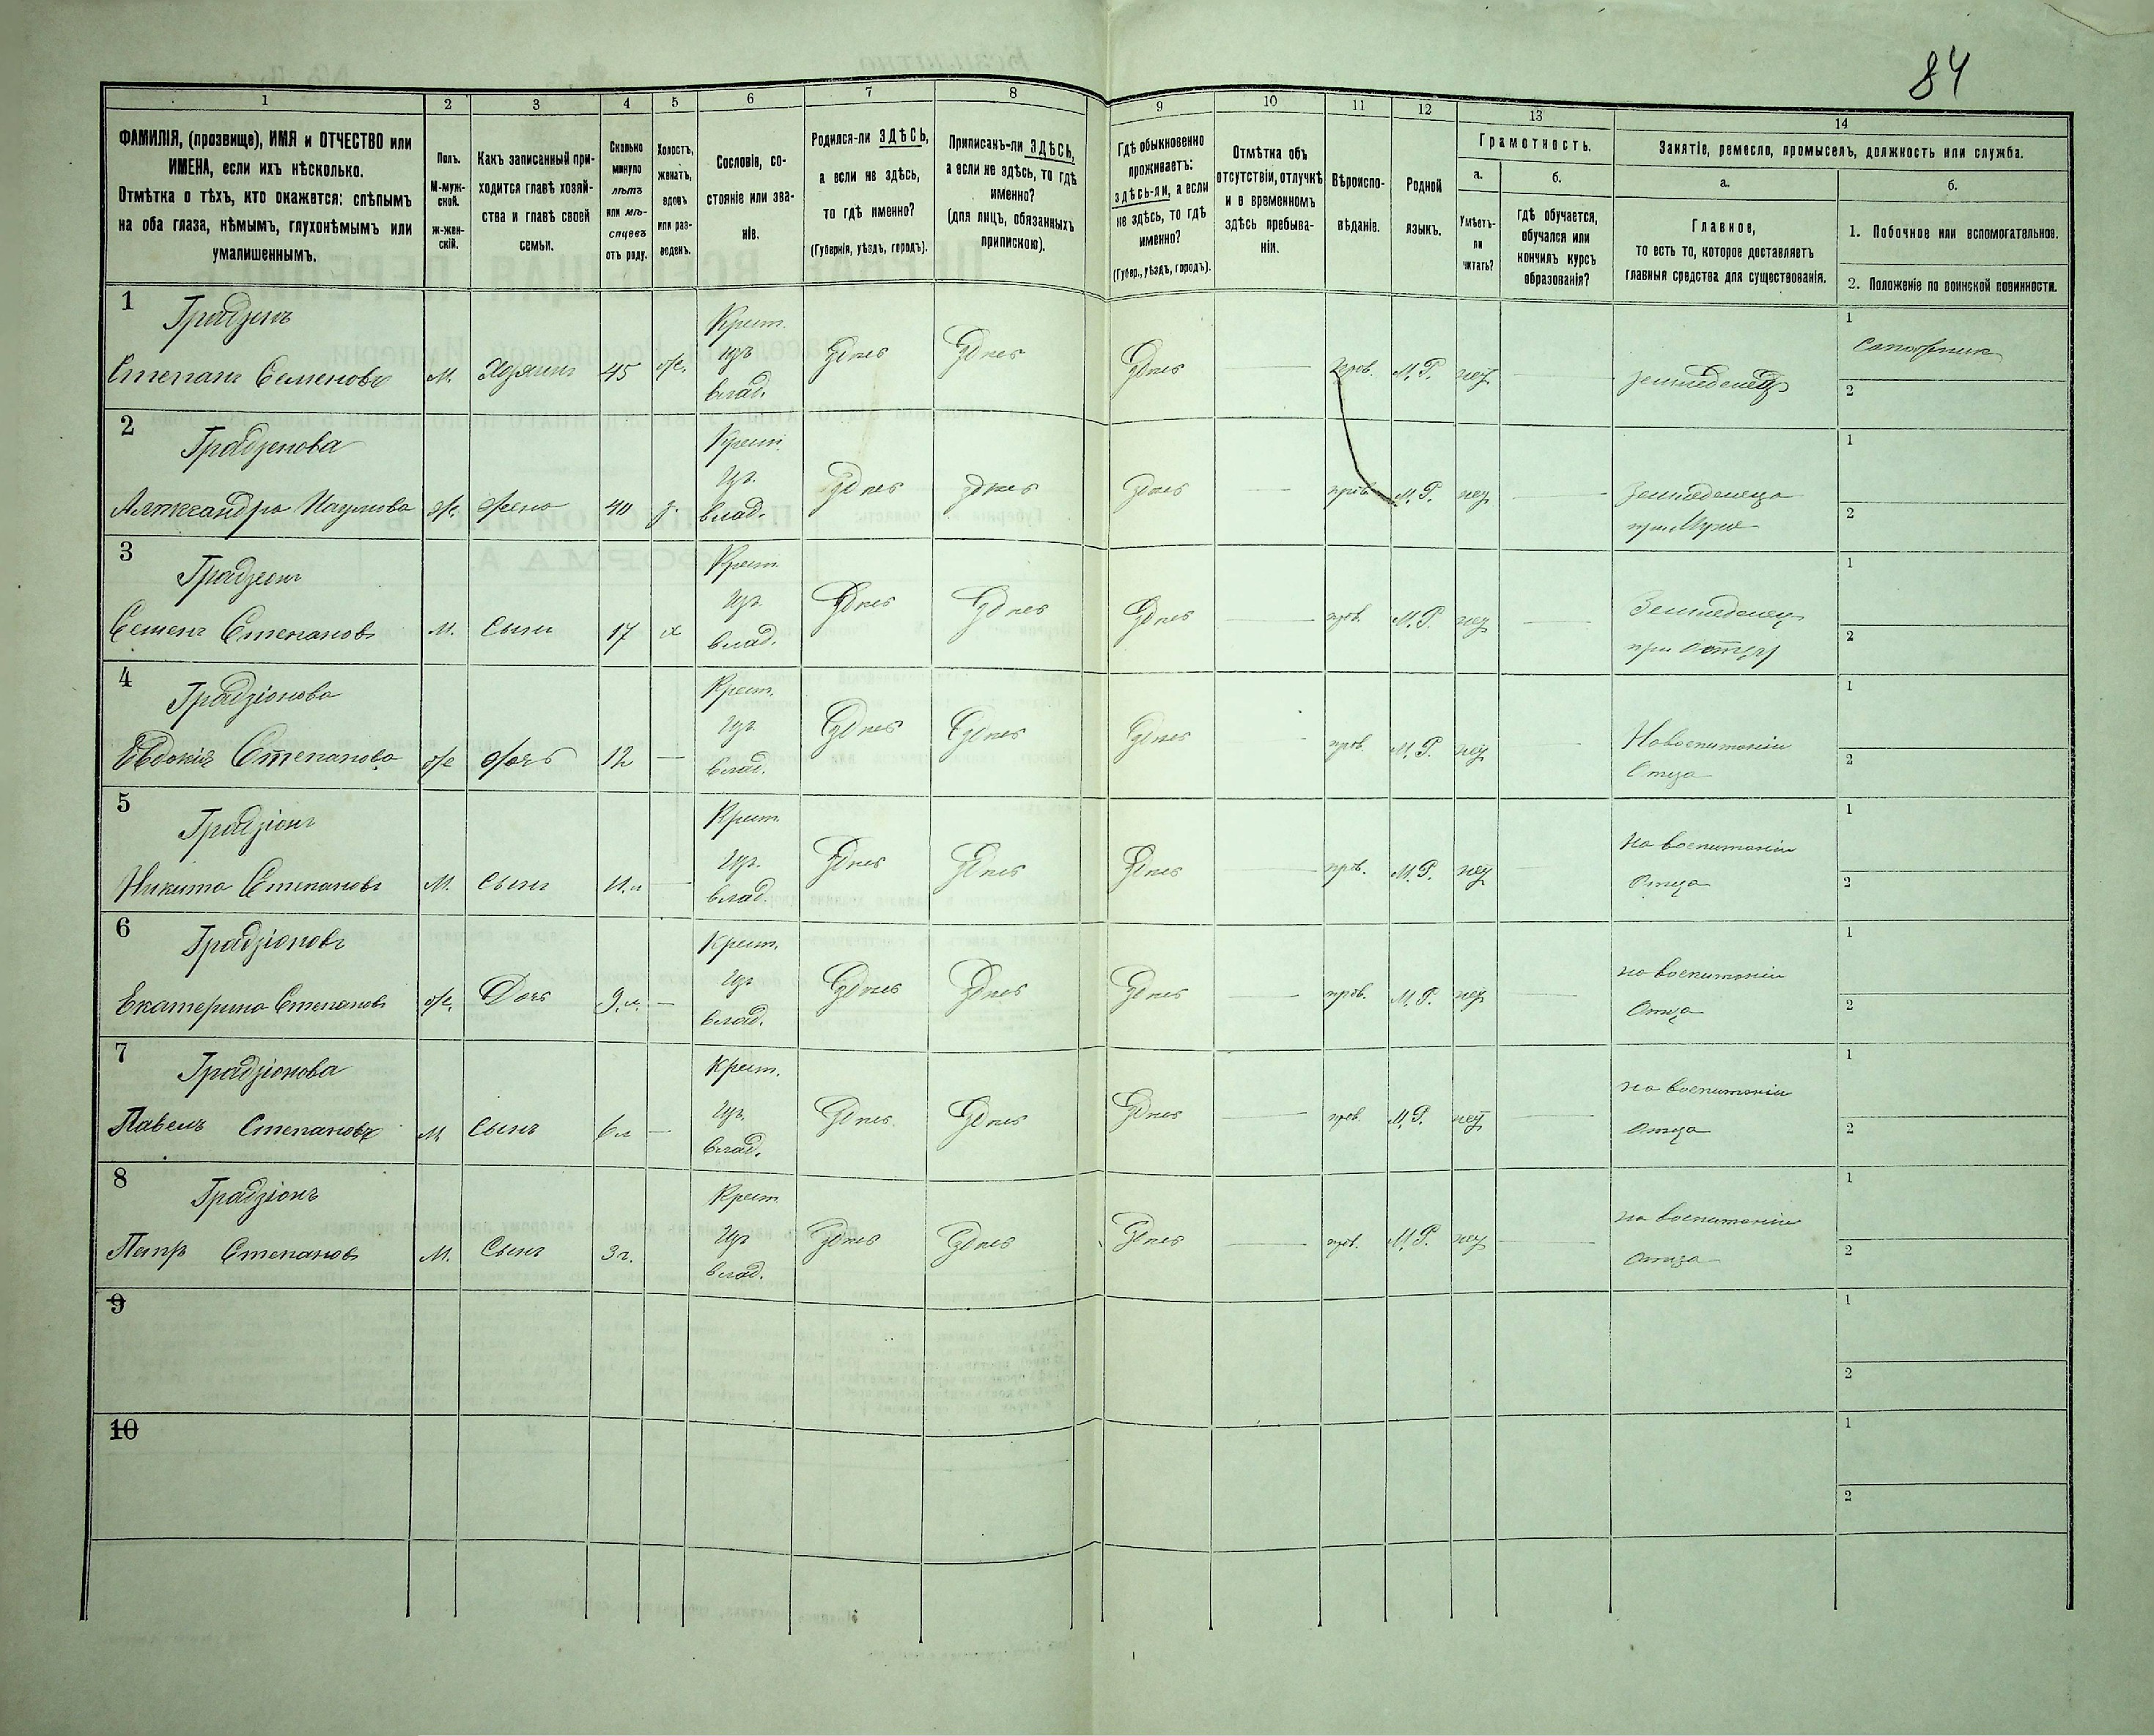 84
1 2 3 4 5 6 7 8 9 10 11 12 13 14
ФАМИЛІЯ, (прозвище), ИМЯ и ОТЧЕСТВО или
ИМЕНА, если ихъ нѣсколько.
Отмѣтка о тѣхъ, кто окажется: слѣпымъ
на оба глаза, нѣмымъ, глухонѣмымъ или
умалишеннымъ.
Полъ.
М-муж-
ской.
ж-жен-
скій.
Какъ записанный при-
ходится главѣ хозяй-
ства и главѣ своей
семьи.
Сколько
минуло
лѣтъ
или мѣ-
сяцевъ
отъ роду.
Холостъ,
женатъ,
вдовъ
или раз-
веденъ.
Сословіе, со-
стояніе или зва-
ніе.
Родился-ли ЗДѢСЬ,
а если не здѣсь,
то гдѣ именно?
(Губернія, уѣздъ, городъ).
Приписанъ-ли ЗДѢСЬ,
а если не здѣсь, то гдѣ
именно?
(для лицъ, обязанныхъ
припискою).
Гдѣ обыкновенно
проживаетъ:
здѣсь-ли, а если
не здѣсь, то гдѣ
именно?
(Губер., уѣздъ, городъ).
Отмѣтка объ
отсутствіи, отлучкѣ
и о временномъ
здѣсь пребыва-
ніи.
Вѣроиспо-
вѣданіе.
Родной
языкъ.
Грамотность.
а.
Умѣетъ-
ли
читать?
б.
гдѣ обучается,
обучался или
кончилъ курсъ
образованія?
Занятіе, ремесло, промыселъ, должность или служба.
а.
Главное,
то есть то, которое доставляетъ
главныя средства для существованія.
б.
1. Побочное или вспомогательное.
2. Положеніе по воинской повинности.
1
Степанъ Семеновъ М. Хозяинъ 45 ж. Крест. изъ влад. Здѣсь Здѣсь Здѣсь — М. Р. нѣт — земледелец
1
2
2
Александра Наумова ж. жена 40 з. Крест. из. влад. Здѣсь здѣсь Здѣсь — прав. М. Р. нѣт —
при Муже
1
2
3
Семенъ Степановъ М. Сынъ 17 х Крест. из. влад. Здѣсь Здѣсь Здѣсь — прав. М. Р. нѣт — Земледелец
при Отцѣ
1
2
4
Градзіонова
Евдокія Степанова ж 12 — Крест. из. влад. Здѣсь Здѣсь Здѣсь — прав. М. Р. нѣт — На воспитаніи
Отца
1
2
5
Градзіонъ
Никита Степановъ М. Сынъ 11.л — Крест. Из. влад. Здѣсь Здѣсь Здѣсь — прав. М. Р. нѣт — На воспитаніи
Отца
1
2
6
Градзіоновъ
Екатерина Степановъ ж. Дочь 9.л. — Крест. Из влад. Здѣсь Здѣсь Здѣсь — прав. М. Р. нѣт — на воспитаніи
Отца
1
2
7
Градзіонова
Павелъ Степановъ М Сынъ 6л — Крест. Из. влад. Здѣсь Здѣсь Здѣсь — прав. М. Р. нѣт — на воспитаніи
отца
1
2
8
Градзіонъ
Петръ Степановъ М. Сынъ 3г. Крест Из влад. Здѣсь Здѣсь Здѣсь — прав. М. Р. нѣт — на воспитаніи
отца
1
2
9
1
2
10
1
2